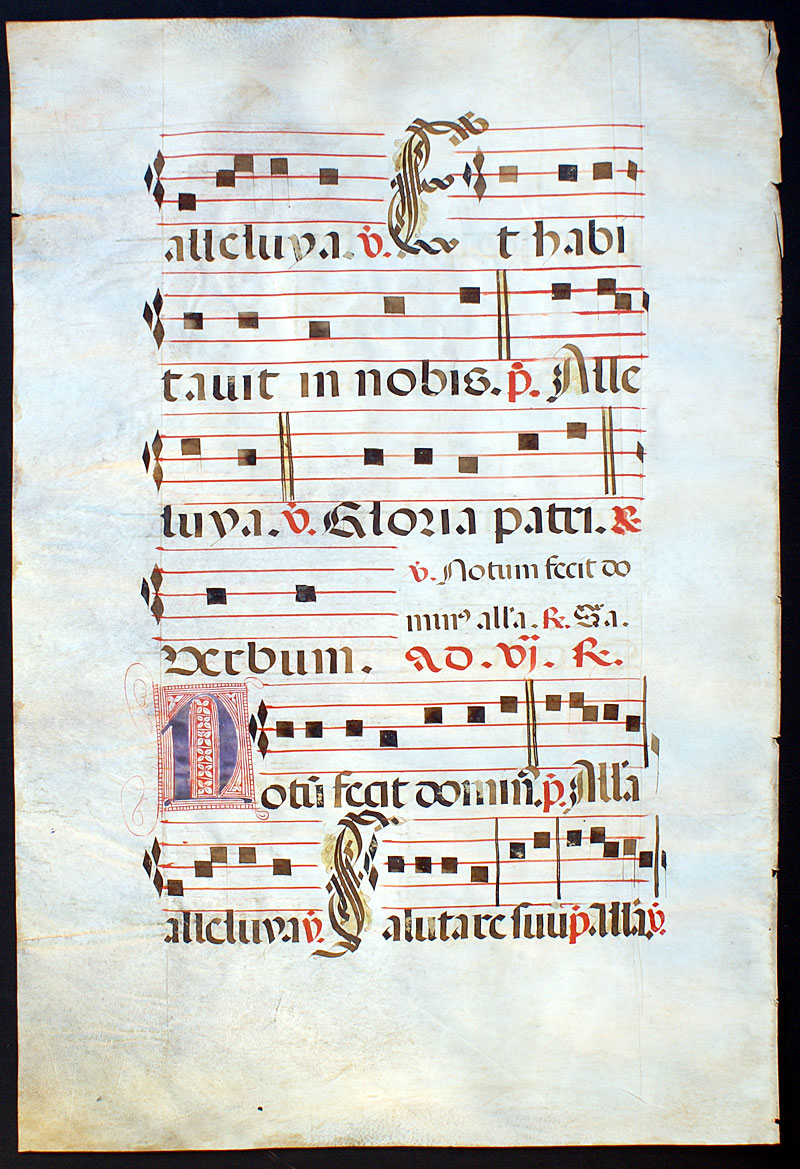 alleluya. ℣. Et habi
tauit in nobis. p̄. Alle
luya. ℣. Gloria patri. ℟
℣. Notum fecit do
minꝰ all'a. ℟. Sa.
Verbum. AD. VJ. ℟.
Notū fecit dominꝰ. p̄. All'a
alleluya ℣. Salutare suū p̄. all'a. ℣.